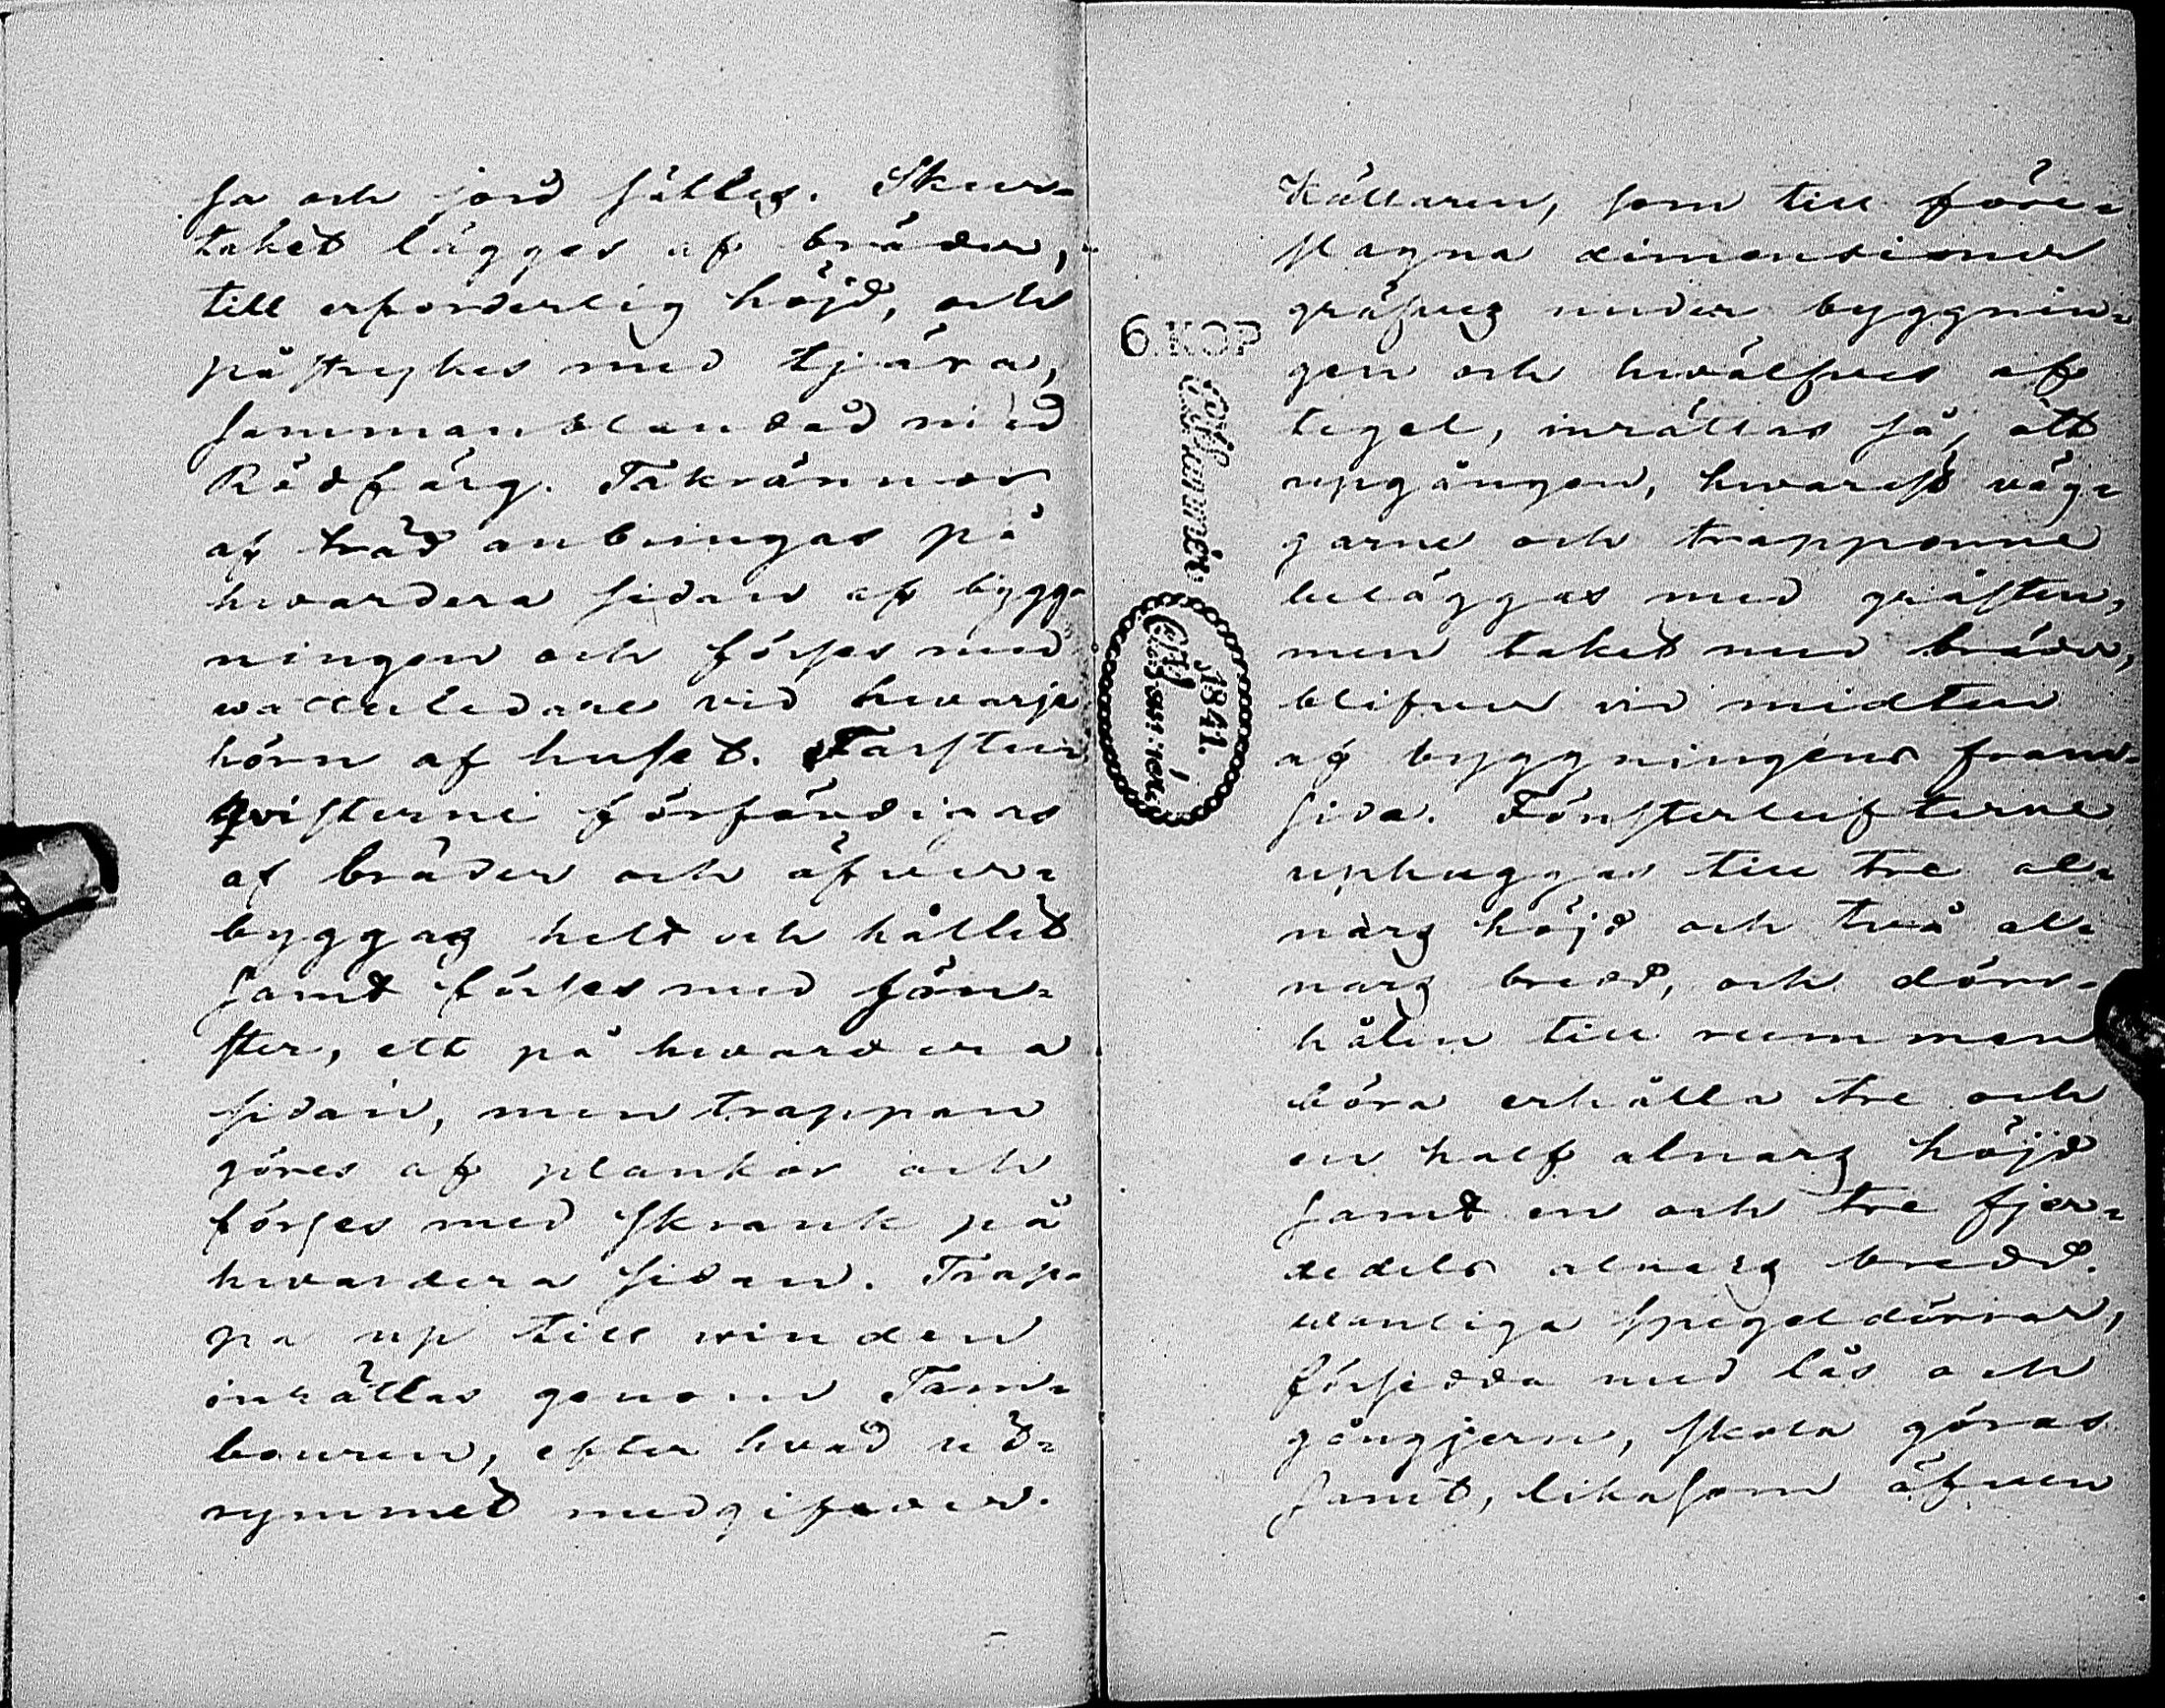 sa och jord fälles. Skur-
taket lägges af bräder,
till erforderlig höjd, och
påstrykes med tjära,
sammanblandad med
Rödfärg. Takrännor
af träd anbringas på
hvardera sidan af bygg-
ningen och förses med
wattuledare vid hvarje
hörn af huset. Farstu
qvisterne förfärdigas
af bräder och öfver-
byggas helt och hållet
samt förses med fön-
ster, ett på hvardera
sidan, men trappan
göres af plankor och
förses med skrank på
hvardera sidan. Trap-
pa up till vinden
inrättas genom Tam-
bouren, efter hvad ut-
rymmet medgifver.
Källaren, som till före-
slagna dimensioner
gräfves under byggnin-
gen och hvälfves af
tegel, inrättas så, att
upgången, hvarest väg-
garne och trapporne
beläggas med gråsten,
men taket med bräder,
blifver vid midten
af byggningens fram-
sida. Fönsterlufterne
uphuggas till tre al-
nars höjd och två al-
nars bredd, och dörr-
hålen till rummen
böra erhålla tre och
en half alnars höjd
samt en och tre fjer-
dedels alnars bredd.
Wanliga spegeldörrar,
försedda med lås och
gångjern, skola göras
samt, likasom äfven
6.KOP
1841.